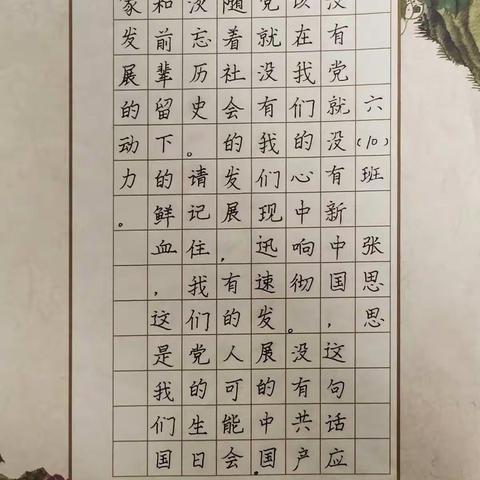 六(10)班 张思思
没有党就没有新中国，这句话应
该在我们的心中响彻。没有共产
党就没有我们现迅速发展的中国.
随着社会的发展，有的人可能会
淡忘历史。请记住我们党的生日
和前辈留下的鲜血，这是我们国
家发展的动力。